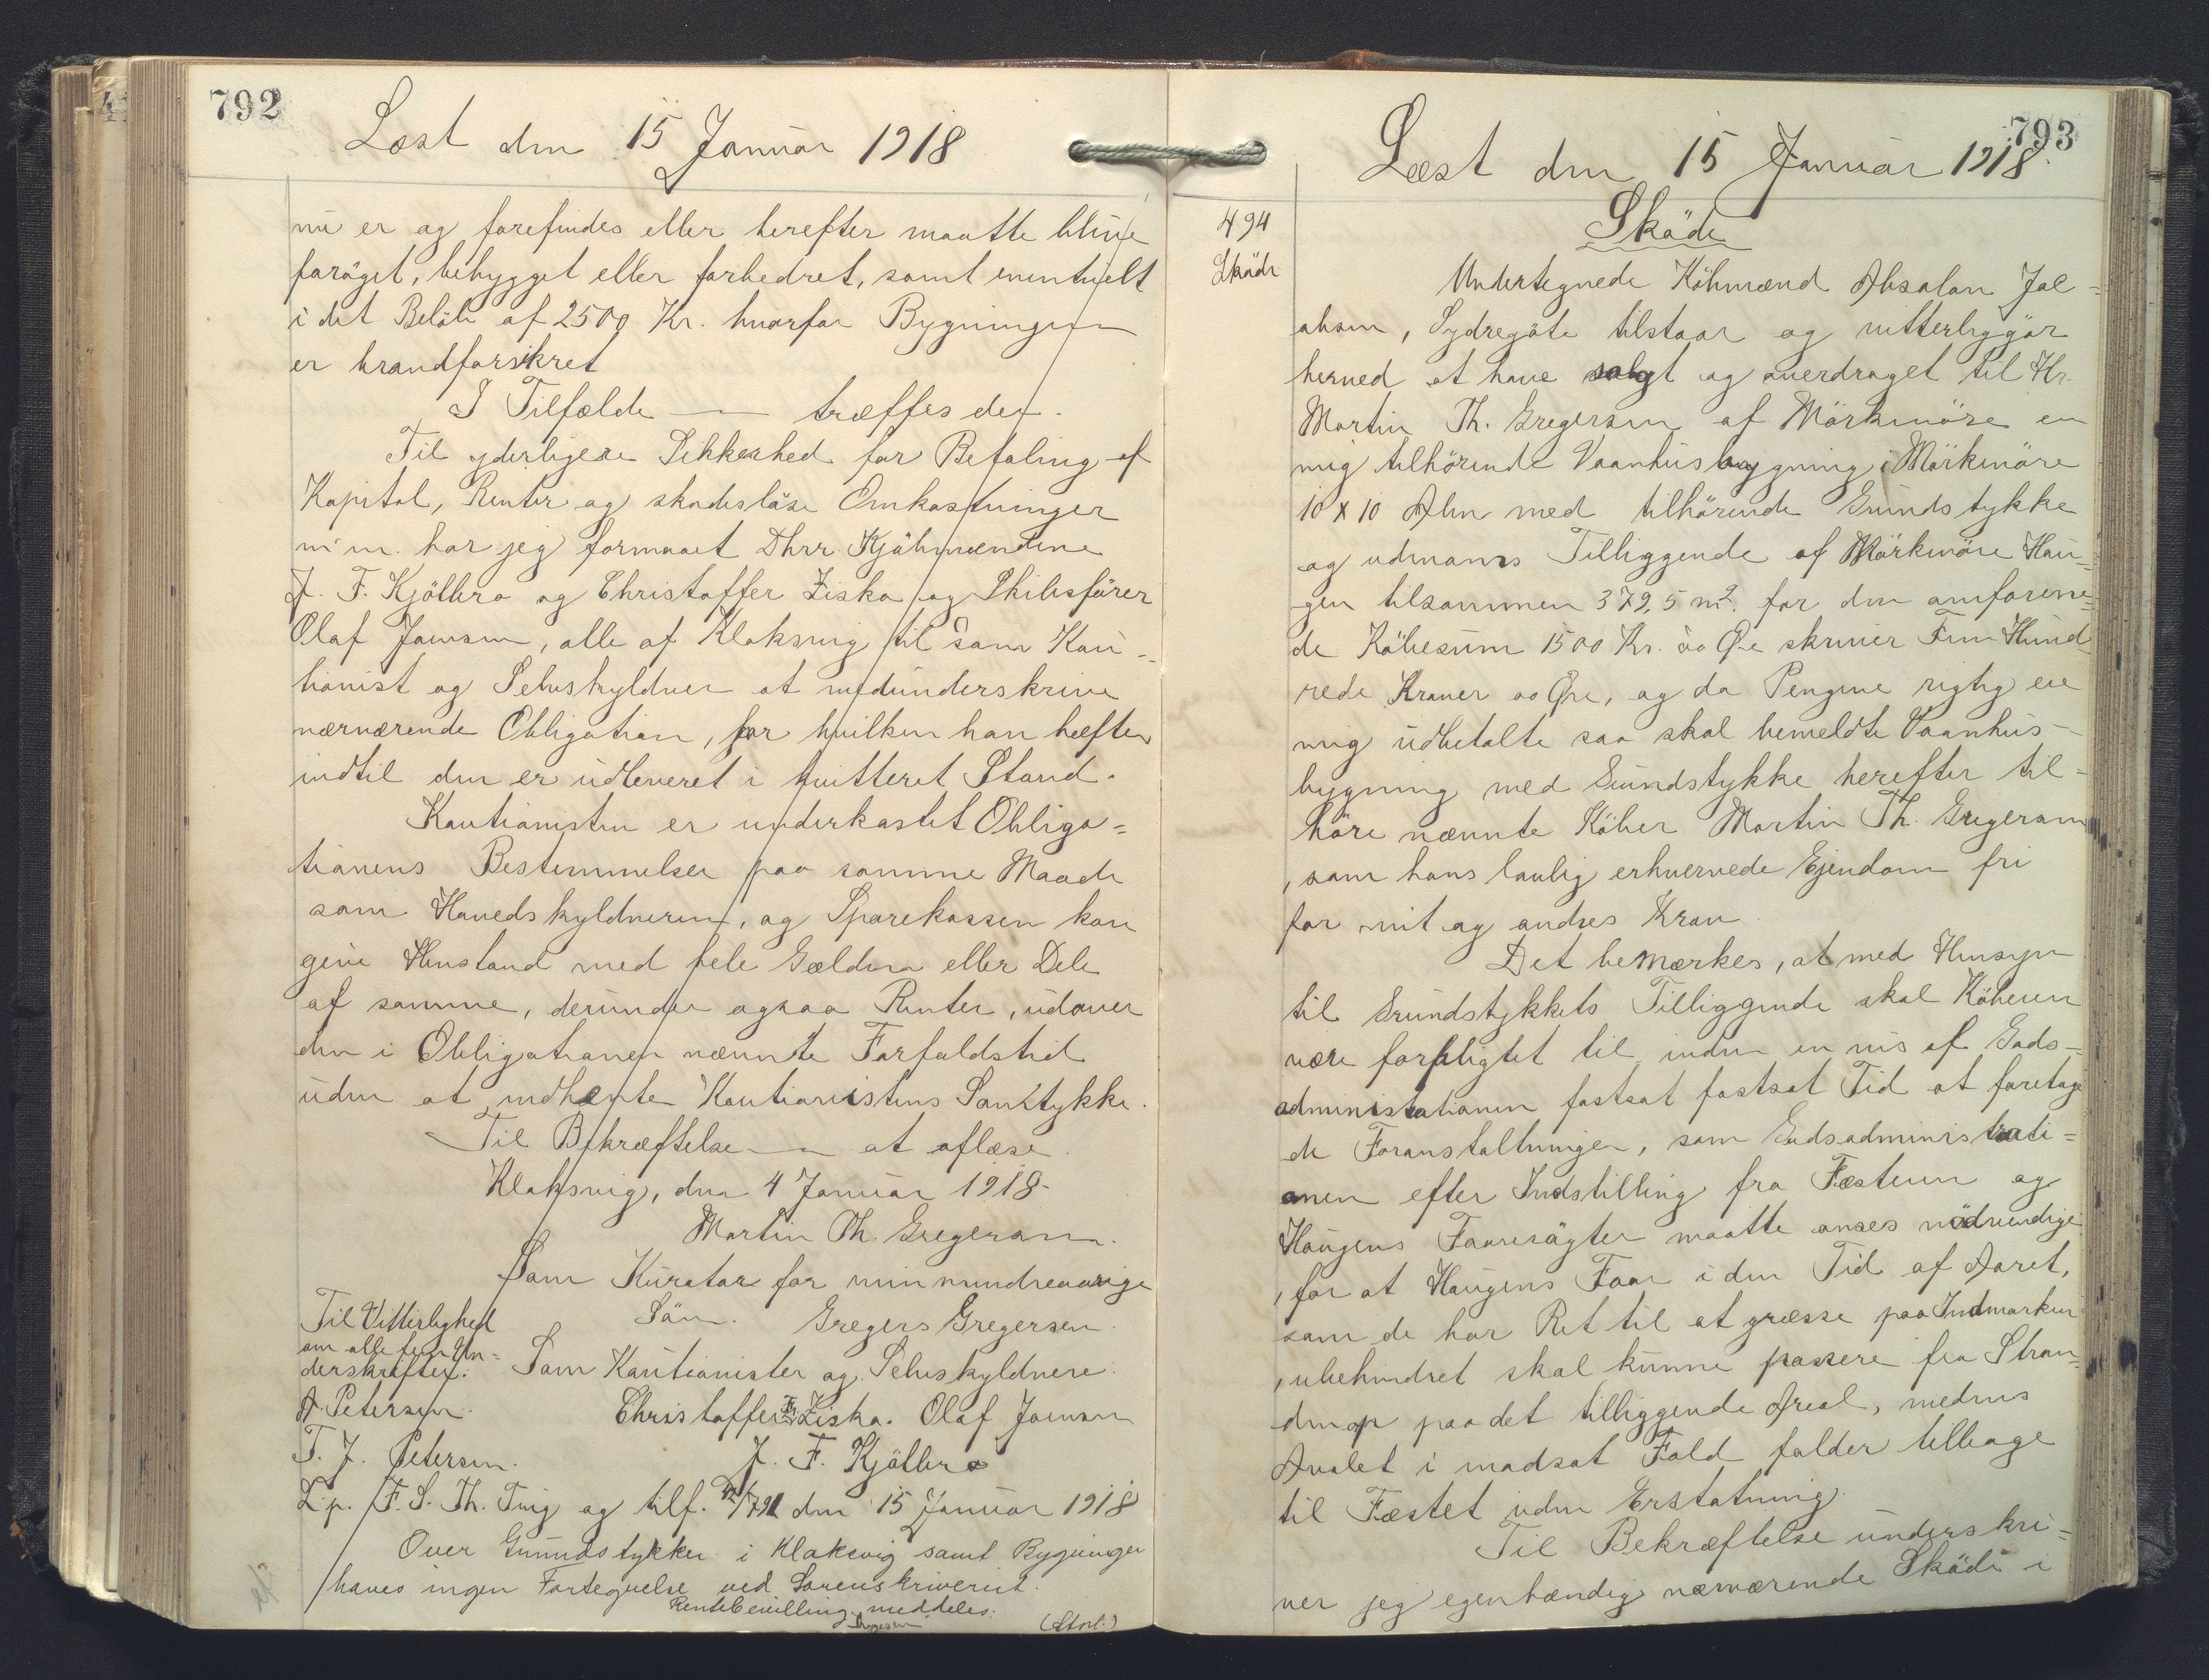 792
Læst den 15 Januar 1918
nu er og forefindes eller herefter maatte blive
forøget, bebygget eller forbedret, samt eventuelt
i det Beløb af 2500 Kr. hvorfor Bygningen
er brandforsikret
I Tilfælde — træffes der.
Til yderligere Sikkerhed for Betaling af
Kapital, Renter og skadesløse Omkostninger
m m. har jeg formaaet Dhrr. Kjøbmændene
J. F. Kjølbro og Christoffer Ziska og Skibsfører
Olaf Joensen, alle af Klaksvig til som Kau-
tionist og Selvskyldner at medunderskrive
nærværende Obligation, for hvilken han hæfter
indtil den er udleveret i kvitteret Stand.
Kautionisten er underkastet Obliga=
tionens Bestemmelser paa samme Maade
som Hovedskyldneren, og Sparekassen kan
give Henstand med hele Gælden eller Dele
af samme, derunder ogsaa Renter, udover
den i Obligationen nævnte Forfaldstid
uden at indhente Kautionistens Samtykke.
Til Bekræftelse — at aflæse.
Klaksvig, den 4 Januar 1918.
Martin Th. Gregersen.
Som Kurator for min mindreaarige
Søn. Gregers Gregersen.
Til Vitterlighed
om alle fem Un=
derskrifter.
Som Kautionister og Selvskyldnere:
A. Petersen.
Christoffer Fr. Ziska. Olaf Joensen
T. J. Petersen.
J. F. Kjølbro
L.p. F. S. Th. Ting og tilf. /791 den 15 Januar 1918
Over Grundstykker i Klaksvig samt Bygninger
haves ingen Fortegnelse ved Sorenskriveriet.
Rentebevilling meddeles.
(Stpl.)
793
Læst den 15 Januar 1918.
494
Skøde
Skøde
Undertegnede Købmand Absalon Jac=
obsen, Sydregøte tilstaar og vitterliggør
herved at have solgt og overdraget til Hr.
Martin Th. Gregersen af Mørkenøre en
mig tilhørende Vaanhusbygning i Mørkenøre
10 x 10 Alen med tilhørende Grundstykke
og udmarks Tilliggende af Mørkenøre Hau=
gen tilsammen 379,5 m2. for den omforene=
de Købesum 1500 Kr. oo Øre skriver Fem Hund
rede Kroner oo Øre, og da Pengene rigtig ere
mig udbetalte saa skal bemeldte Vaanhus-
bygning med Grundstykke herefter til-
høre nævnte Køber Martin Th. Gregersen
, som hans lovlig erhvervede Ejendom fri
for mit og andres Krav.
Det bemærkes, at med Hensyn
til Grundstykkets Tilliggende skal Køberen
være forpligtet til inden en vis af Gods-
administationen fastsat fastsat Tid at foretage
de Foranstaltninger, som Godsadministrati=
onen efter Indstilling fra Fæsteren og
Haugens Faaresøgter maatte anses nødvendige
, for at Haugens Faar i den Tid af Aaret,
som de har Ret til at græsse paa Indmarken
, ubehindret skal kunne passere fra Stran=
den op paa det tilliggende Areal, medens
Arealet i modsat Fald falder tilbage
til Fæstet uden Erstatning.
Til Bekræftelse underskri=
ver jeg egenhændig nærværende Skøde i